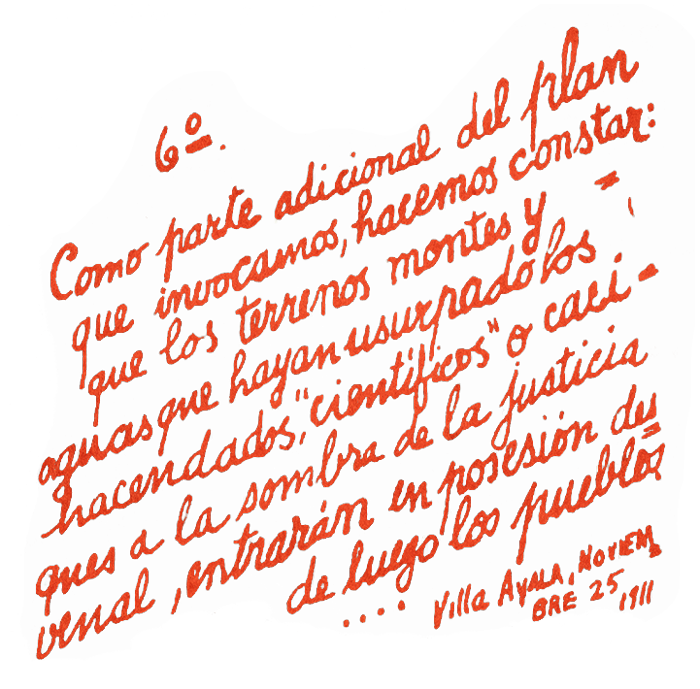 6º.
Como parte adicional del plan
que invocamos, hacemos constar:
que los terrenos montes y =
aguas que hayan usurpado los
hacendados, "científicos" o caci-
ques a la sombra de la justicia
venal, entrarán en posesión des
de luego los pueblos
....
Villa AyALA, NOVIEM
BRE 25, 1911